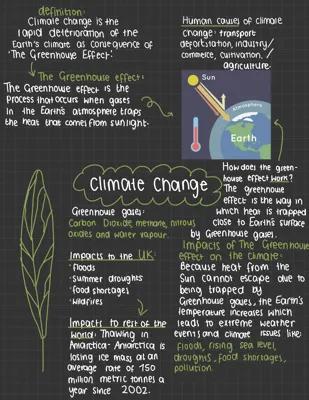 definition:
Climate change is the
rapid deterioration of the
Earth's climate as consequence of
"The Greenhouse Effect."
The Greenhouse effect:
The Greenhouse effect is the
Process that occurs when gases
in the Earth's atmosphere traps
the heat that comes from sunlight.
Human causes of climate
change: transport
deforestation, industry/
commerce, cultivation,/
agriculture.
Sun
Atmosphere
Earth
How does the green-
house effect work?
The greenhouse
effect is the way in
which heat is trapped
close to Earth's surface
by Greenhouse gases.
Climate Change
Greenhouse gases:
Carbon Dioxide, methane, nitrous
oxides and water vapour.
Impacts to the UK:
· floods
· summer droughts
· food shortages
· wildfires
Impacts to rest of the
world: Thawing in
Antarctica- Antarctica is
losing ice mass at an
average rate of 150
million metric tonnes a
year since 2002.
Impacts of The Greenhouse
effect on the climate:
Because heat from the
Sun cannot escape due to
being trapped by
Greenhouse gases, the Earth's
temperature increases which
leads to extreme weather
events and climate issues like:
floods, rising sea level,
droughts, food shortages,
pollution.